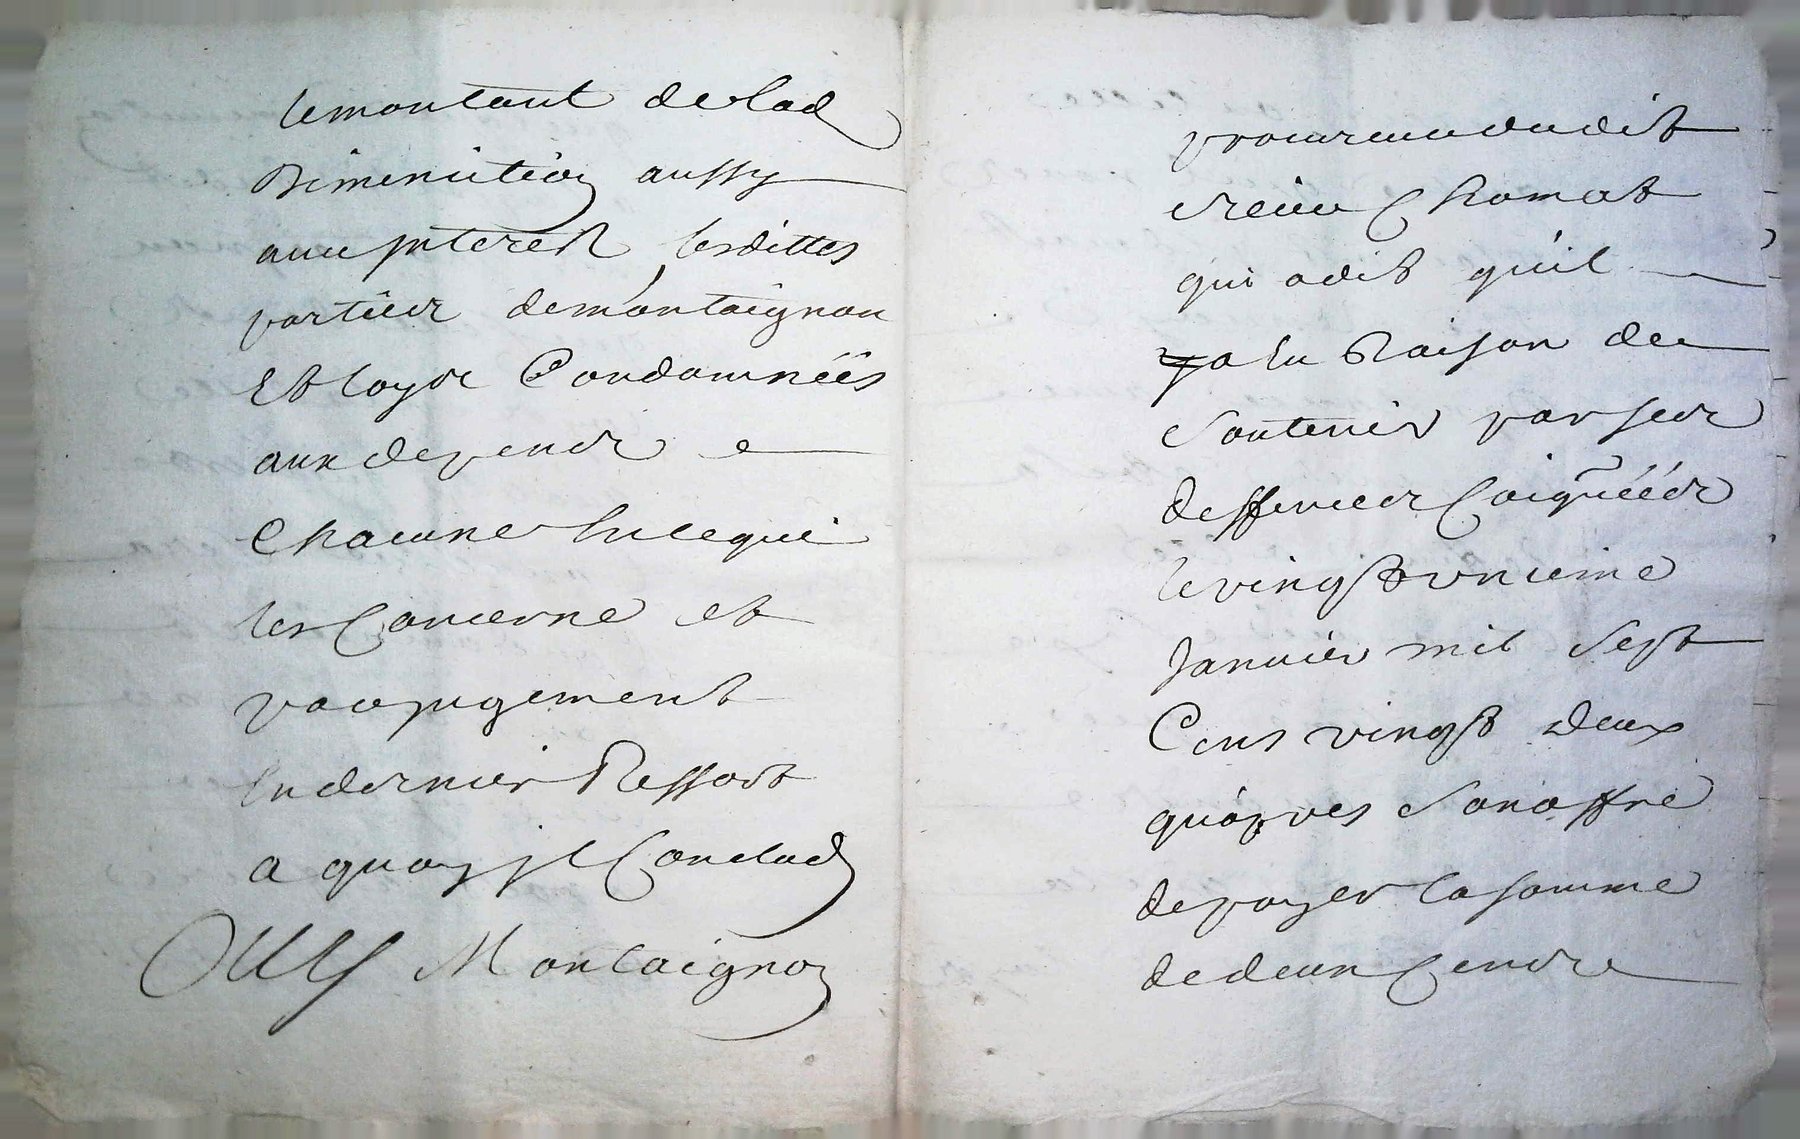 le montant de lad
Diminution aussy
avec jnterest, lesdittes
parties de montaignon
Et loyer Condamnéés
aux depends
Chacune En ce qui
les Concerne et
par jugement
En dernier Ressort
a quoy jl Conclud
Ouy Montaignon
procureur dudit
sieur Chomat
qui a dit qu'il
a Eu Raison de
soutenir par ses
deffences signiffiéés
le vingt unieme
Janvier mil sept
Cens vingt deux
qu'apres son offre
de payer la somme
de deux Cens